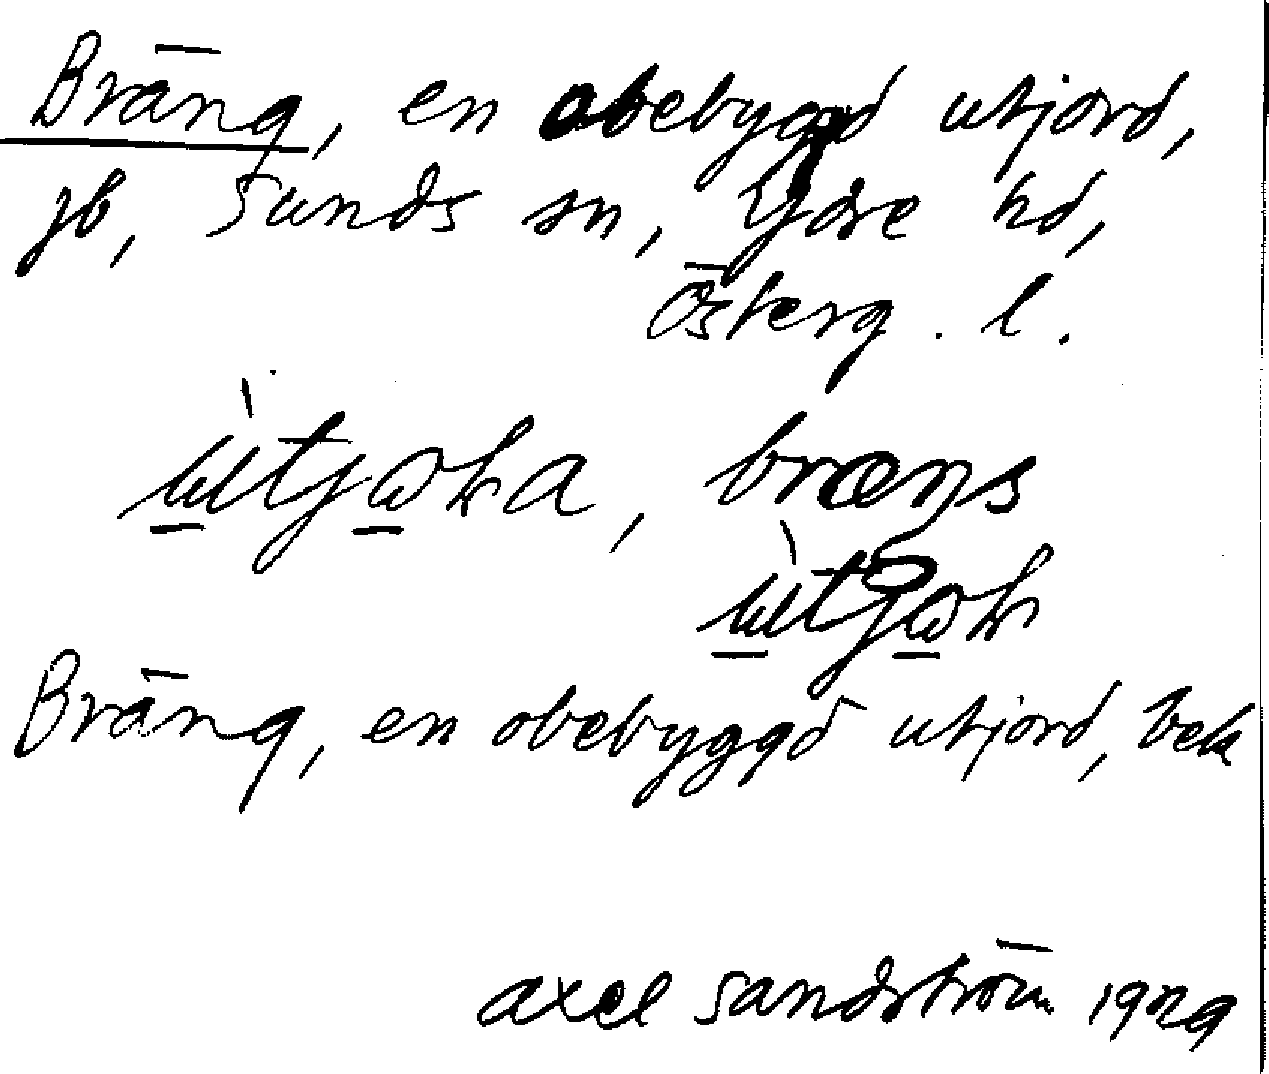 Bräng, en obebyggd utjord,
jb, Sunds sn, Ydre hd,
Österg. l.
Bräng, en obebyggd utjord, bek
axel sandström 1929